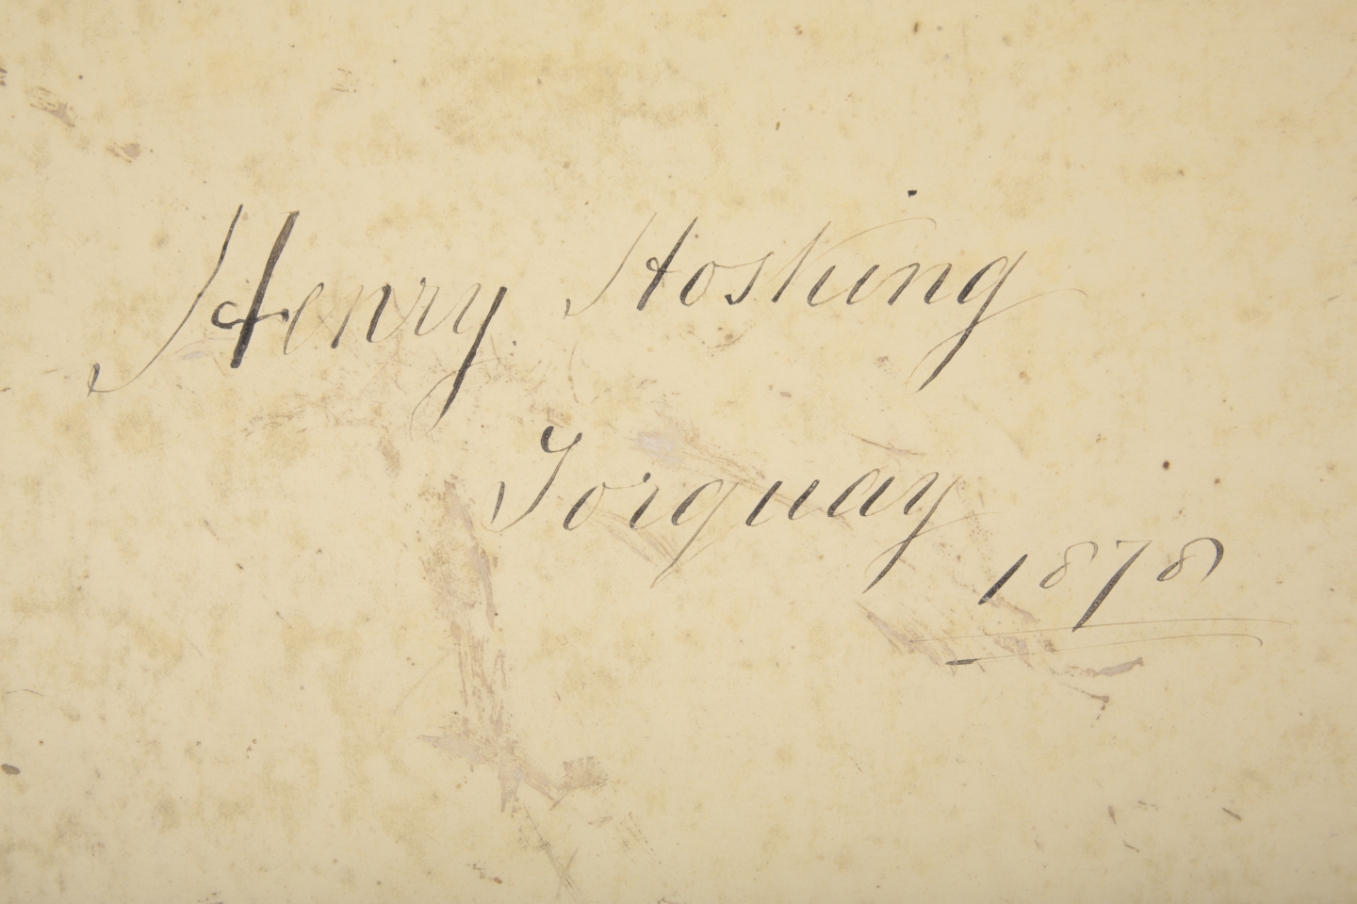 Henry Hosking
Torquay
1878